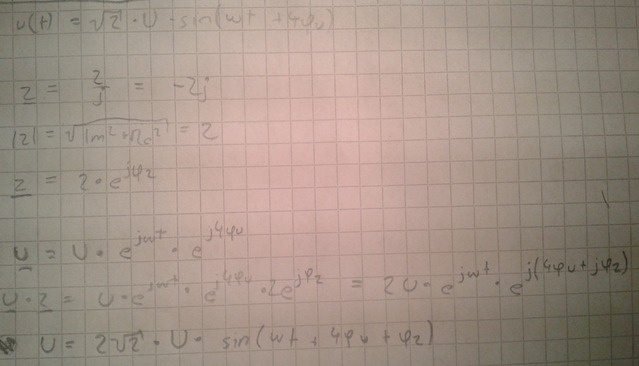 u(t) = √2 · U · sin(ωt + 4φu)
z = 2/j = -2j
|z| = √(Im² + Re²) = 2
z = 2 · e^jφz
u = U · e^jωt · e^j4φu
u · z = U · e^jωt · e^j4φu · 2e^jφz = 2U · e^jωt · e^j(4φu + jφz)
U = 2√2 · U · sin(ωt + 4φu + φz)